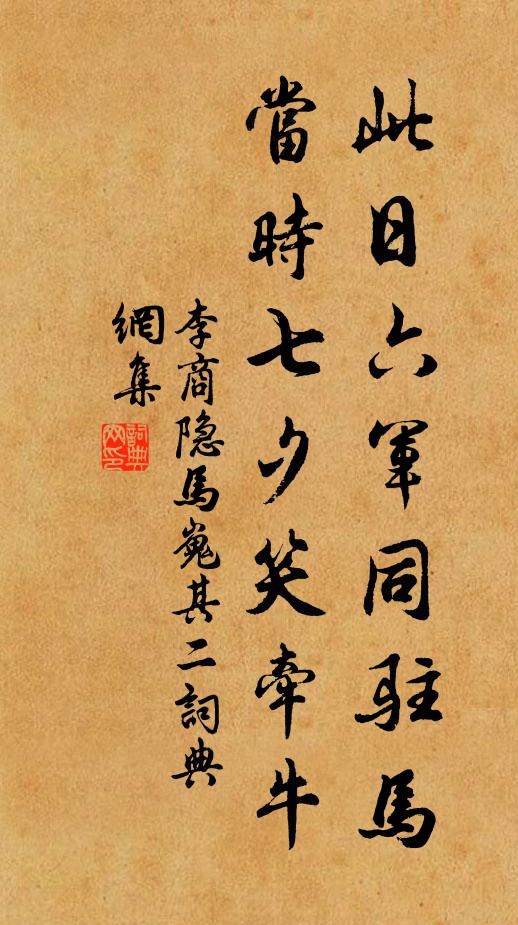 此日六軍同駐馬
當時七夕笑牽牛
李商隐馬嵬其二詞典
網集
詞典
网印